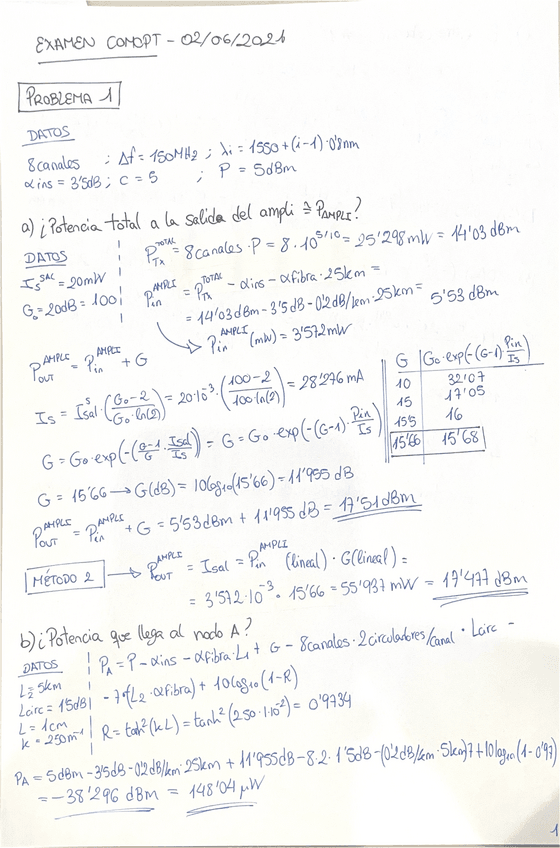 EXAMEN COMOPT - 02/06/2021
PROBLEMA 1
DATOS
8 canales ; Δf = 150MHz ; λi = 1550 + (i-1)·0'8nm
αins = 3'5dB ; C = 5 ; P = 5dBm
a) ¿Potencia total a la salida del ampli ≅ P_AMPLI?
DATOS
Is^SAL = 20mW
G₀ = 20dB = 100
P_Tx^TOTAL = 8canales·P = 8·10^(5/10) = 25'298mW = 14'03 dBm
P_in^AMPLI = P_Tx^TOTAL - αins - αfibra·25km =
= 14'03dBm - 3'5dB - 0'2dB/km·25km = 5'53 dBm
P_in^AMPLI (mW) = 3'572mW
P_OUT^AMPLI = P_in^AMPLI + G
Is = Isal^s·((G₀-2)/(G₀·ln(2))) = 20·10⁻³·((100-2)/(100·ln(2))) = 28'276 mA
G = G₀·exp(-((G-1)/G·Isal/Is)) = G = G₀·exp(-(G-1)·Pin/Is)
G | G₀·exp(-(G-1)Pin/Is)
10 | 32'07
15 | 17'05
15'5 | 16
15'66 | 15'68
G = 15'66 → G(dB) = 10log₁₀(15'66) = 11'955 dB
P_OUT^AMPLI = P_in^AMPLI + G = 5'53dBm + 11'955 dB = 17'51dBm
MÉTODO 2 → P_OUT^AMPLI = Isal = P_in^AMPLI (lineal)·G(lineal) =
= 3'572·10⁻³·15'66 = 55'937 mW = 17'477 dBm
b) ¿Potencia que llega al nodo A?
DATOS
L₂ = 5km
Lcirc = 1'5dB
L = 1cm
k = 250m⁻¹
P_A = P - αins - αfibra·L₁ + G - 8canales·2circuladores/canal·Lcirc -
- 7·(L₂·αfibra) + 10log₁₀(1-R)
R = tah²(kL) = tanh²(250·1·10⁻²) = 0'9734
P_A = 5dBm - 3'5dB - 0'2dB/km·25km + 11'955dB - 8·2·1'5dB - (0'2dB/km·5km)7 + 10log₁₀(1-0'97)
= -38'296 dBm = 148'04 μW
1